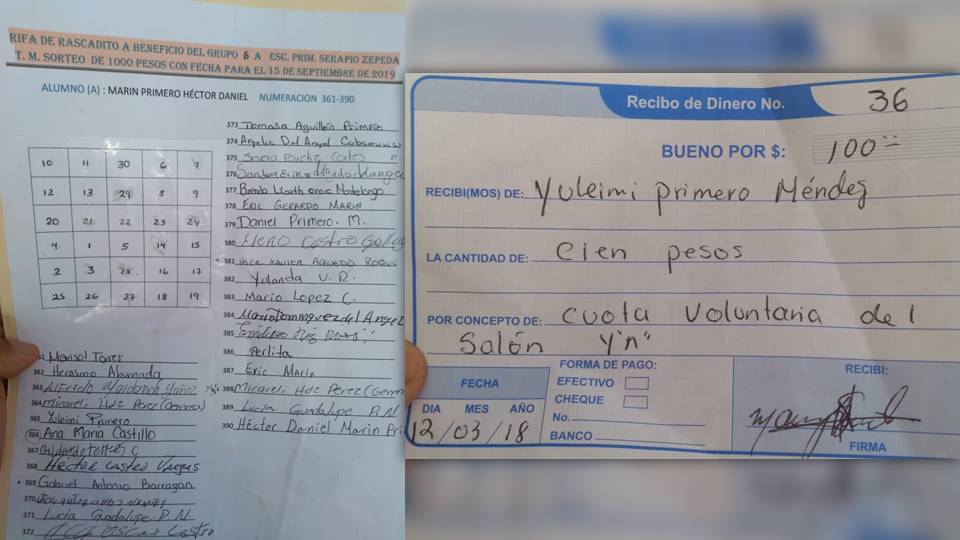 RIFA DE RASCADITO A BENEFICIO DEL GRUPO 6 A ESC. PRIM. SERAPIO ZEPEDA
T. M. SORTEO DE 1000 PESOS CON FECHA PARA EL 15 DE SEPTIEMBRE DE 2019
ALUMNO (A) : MARIN PRIMERO HÉCTOR DANIEL NUMERACION 361-390
10 11 30 6 7
12 13 29 8 9
20 21 22 23 24
4. 1 5 14 15
2 3 28. 16 17
25 26 27 18 19
Marisol Torres
362 Herasmo Ahumada
363 Alfredo
364 Micareli Hdz Perez (Gemma)
365 Yuleimi Primero
366 Ana Maria Castillo
367
368 Héctor Castro Vargas
369 Gabriel Antonio Barragan
370
371 Lucia Guadalupe P.N.
372 Castro
373 Tomasa Aguillón Primero
374 Angelia Del Angel
375 Cortes
376 Sandra
377 Brenda
378 ERIC GERARDO MARIN
379 Daniel Primero. M.
380 Castro
381 XAVIER
382 Yolanda V. R.
383 Mario Lopez C.
384 Mario Dominguez del Angel
385
386 Perlita
387 Eric Marin
388 Micareli Hdz Perez (Gemm
389 Lucia Guadalupe P.N.
390 Héctor Daniel Marin Pri
Recibo de Dinero No. 36
BUENO POR $: 100
RECIBI(MOS) DE: Yuleimi Primero Méndez
LA CANTIDAD DE: Cien pesos
POR CONCEPTO DE: Cuota Voluntaria del
Salón "Y'n"
FORMA DE PAGO:
EFECTIVO
CHEQUE
No.
BANCO
FECHA
DIA MES AÑO
12 / 03 / 18
RECIBI:
FIRMA